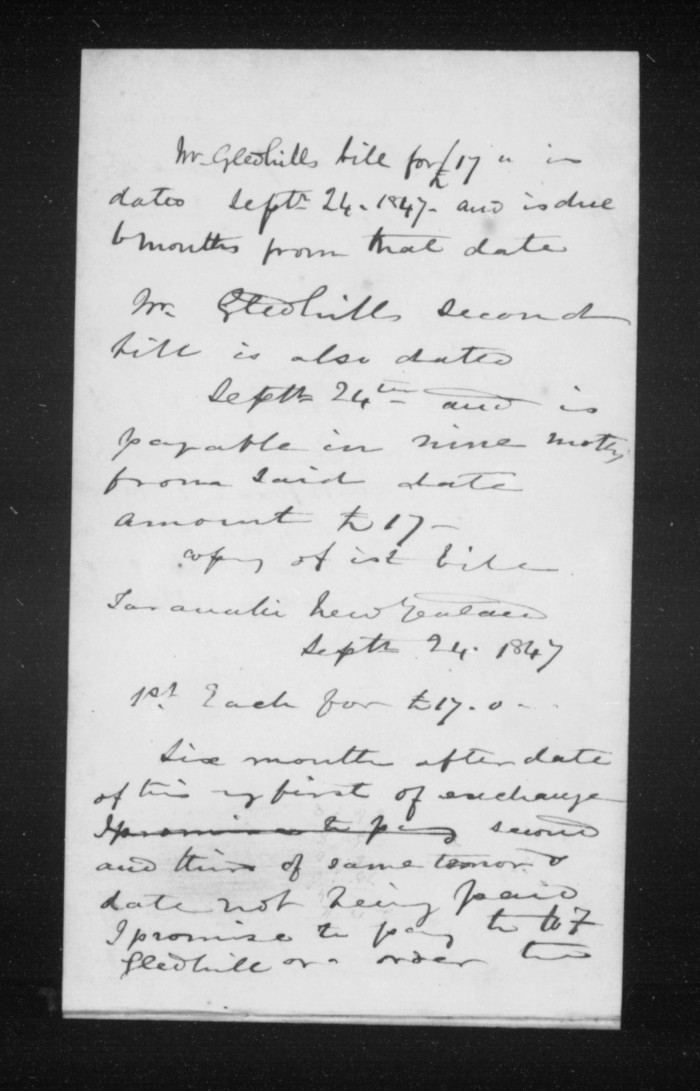 Mr Gledhills bill for £17 " is
dated Septr 24. 1847. and is due
6 months from that date
Mr. Gledhills second
bill is also dated
Septr 24th and is
payable in nine moths
from said date
amount £17-
copy of 1st bill
Taranaki New Zealand
Septr 24. 1847
1st. Each for £17.0-
Six months after date
of this my first of exchange
I promise to pay second
and third of same tenor &
date not being paid
I promise to pay to
Gledhill or order the